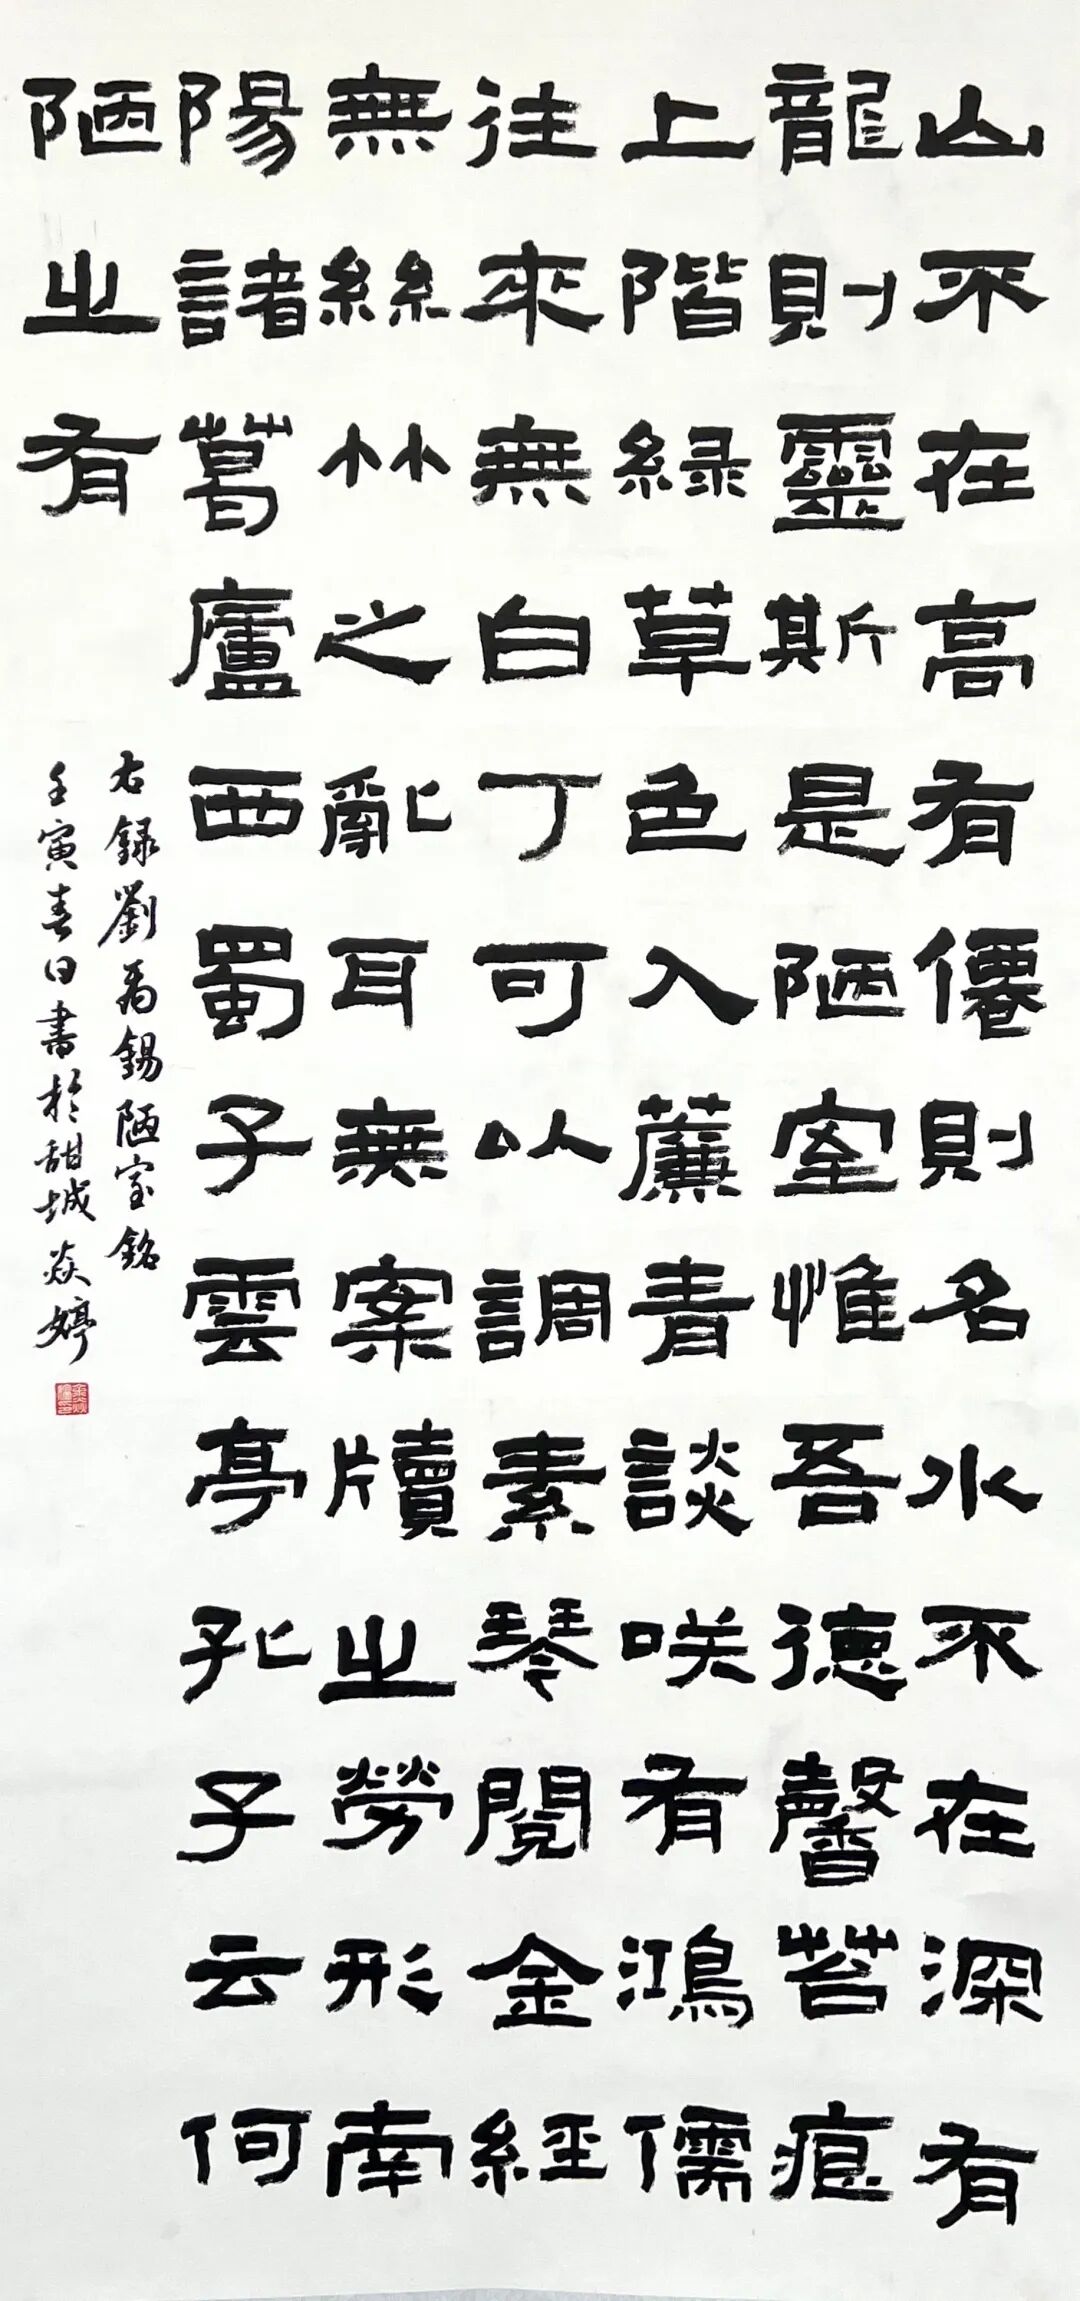 山不在高有僊則名水不在深有
龍則靈斯是陋室惟吾德馨苔痕
上階緑草色入薕青談咲有鴻儒
往來無白丁可以調素琴閲金經
無絲竹之亂耳無案牘之勞形南
陽諸葛廬西蜀子雲亭孔子云何
陋之有
右録劉禹錫陋室銘
壬寅春日書於甜城焱婷